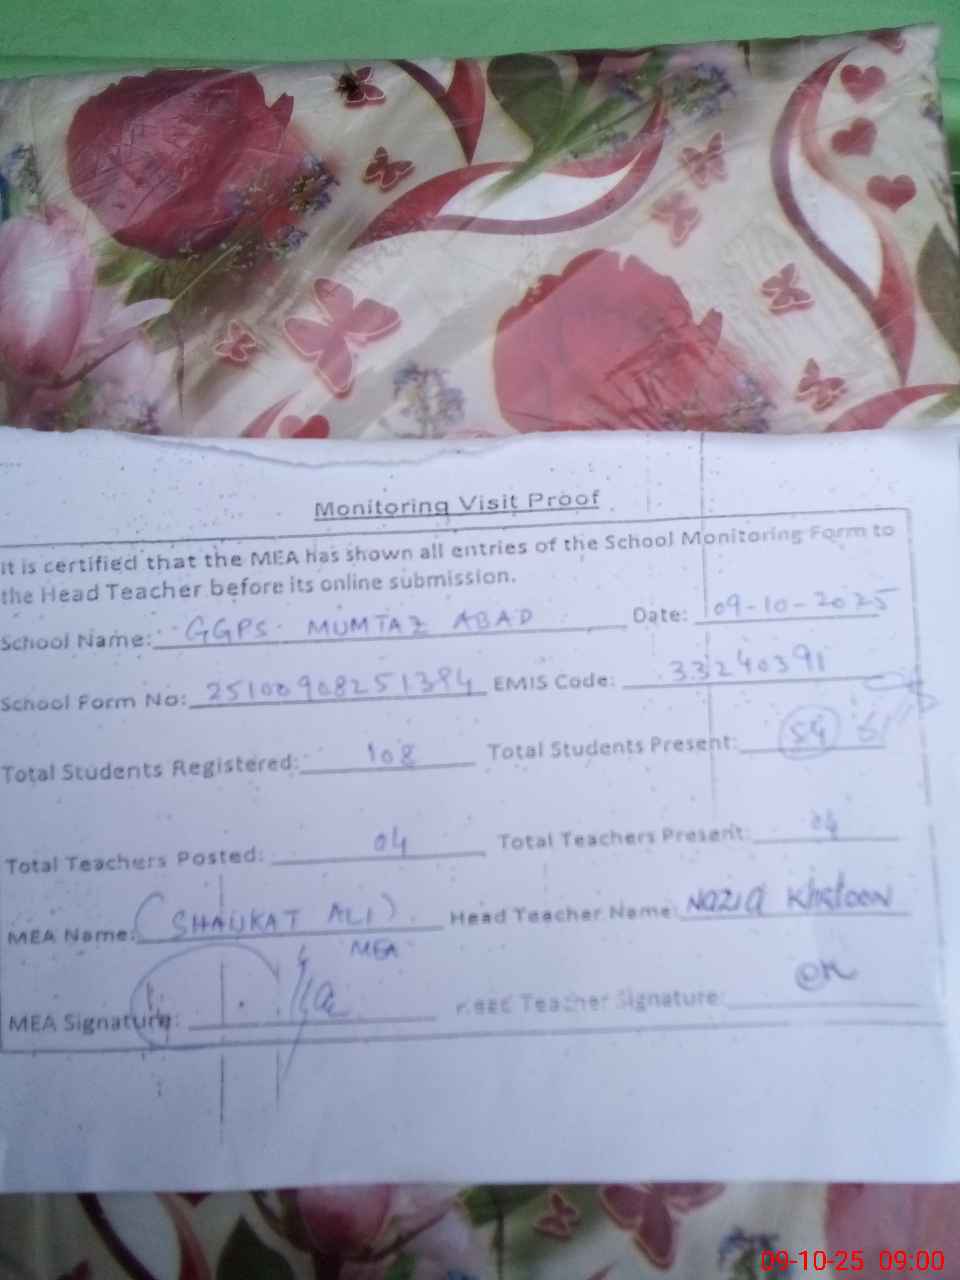 Monitoring Visit Proof
It is certified that the MEA has shown all entries of the School Monitoring Form to
the Head Teacher before its online submission.
School Name: GGPS. MUMTAZ ABAD Date: 09-10-2025
School Form No: 25100908251384 EMIS Code: 33240391
Total Students Registered: 108 Total Students Present: 84
Total Teachers Posted: 04 Total Teachers Present: 04
MEA Name: (SHAUKAT ALI) Head Teacher Name: Nazia Khatoon
MEA
MEA Signature: Head Teacher Signature:
09-10-25 09:00